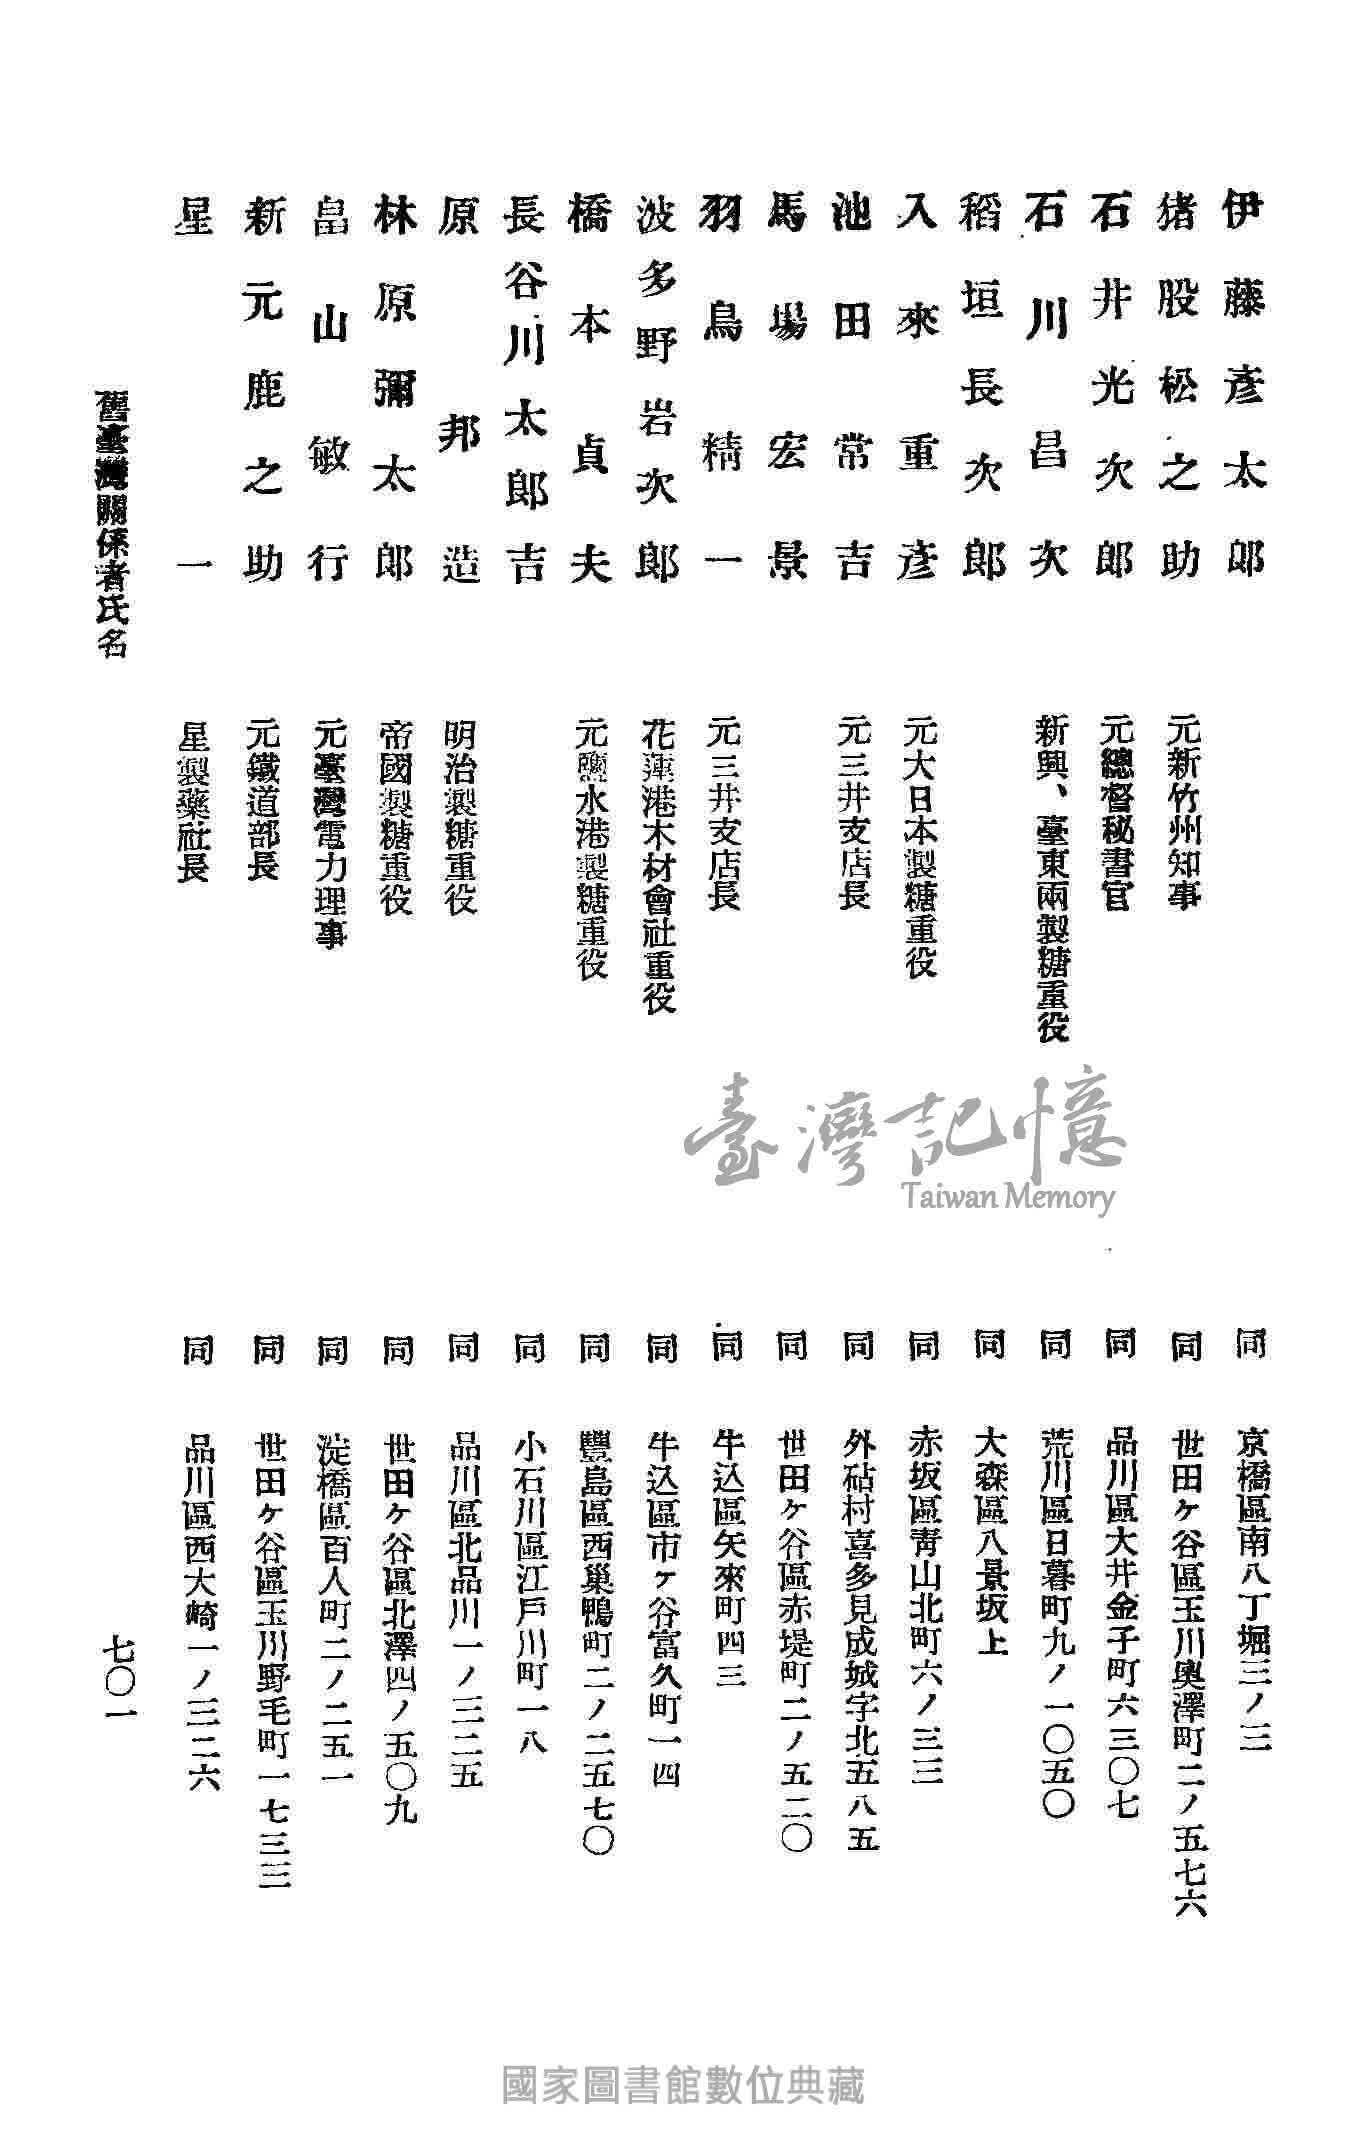 伊藤彥太郎 同 京橋區南八丁堀三ノ三
猪股松之助 元新竹州知事 同 世田ヶ谷區玉川奧澤町二ノ五七六
石井光次郎 元總督秘書官 同 品川區大井金子町六三〇七
石川昌次 新興、臺東兩製糖重役 同 荒川區日暮町九ノ一〇五〇
稻垣長次郎 同 大森區八景坂上
入來重彥 元大日本製糖重役 同 赤坂區靑山北町六ノ三三
池田常吉 元三井支店長 同 外砧村喜多見成城字北五八五
馬場宏景 同 世田ヶ谷區赤堤町二ノ五二〇
羽鳥精一 元三井支店長 同 牛込區矢來町四三
波多野岩次郎 花蓮港木材會社重役 同 牛込區市ヶ谷富久町一四
橋本貞夫 元鹽水港製糖重役 同 豐島區西巢鴨町二ノ二五七〇
長谷川太郎吉 同 小石川區江戶川町一八
原邦造 明治製糖重役 同 品川區北品川一ノ三二五
林原彌太郎 帝國製糖重役 同 世田ヶ谷區北澤四ノ五〇九
畠山敏行 元臺灣電力理事 同 淀橋區百人町二ノ二五一
新元鹿之助 元鐵道部長 同 世田ヶ谷區玉川野毛町一七三三
星一 星製藥社長 同 品川區西大崎一ノ三二六
舊臺灣關係者氏名
七〇一
臺灣記憶
Taiwan Memory
國家圖書館數位典藏